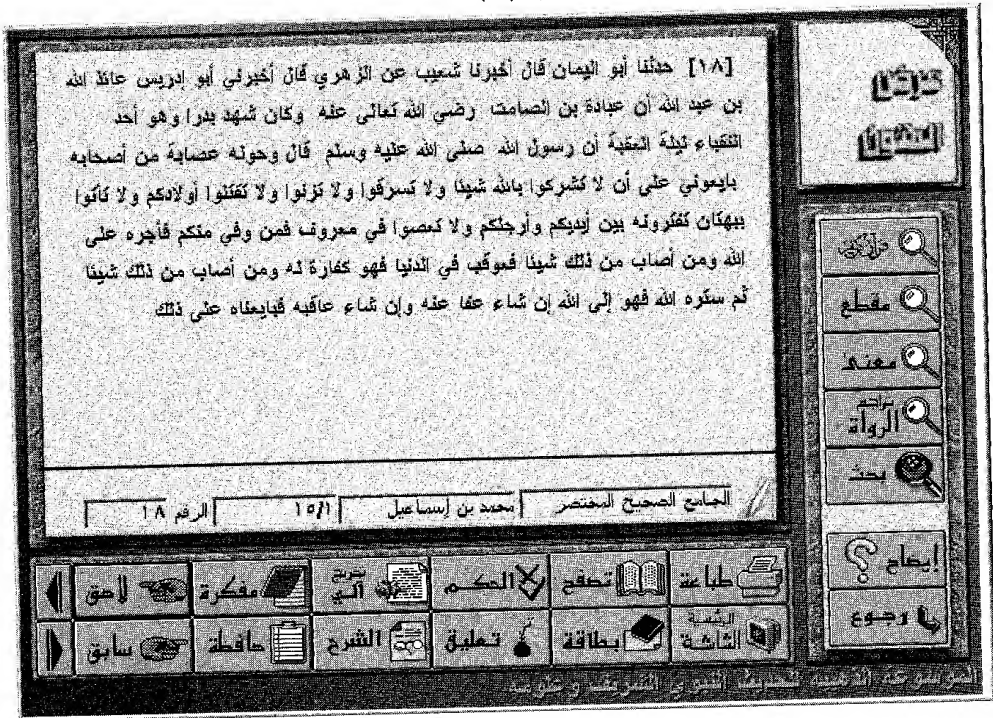 [١٨] حدثنا أبو اليمان قال أخبرنا شعيب عن الزهري قال أخبرني أبو إدريس عائذ الله
بن عبد الله أن عبادة بن الصامت رضي الله تعالى عنه وكان شهد بدرا وهو أحد
النقباء ليلة العقبة أن رسول الله صلى الله عليه وسلم قال وحوله عصابة من أصحابه
بايعوني على أن لا تشركوا بالله شيئا ولا تسرقوا ولا تزنوا ولا تقتلوا أولادكم ولا تأتوا
ببهتان تفترونه بين أيديكم وأرجلكم ولا تعصوا في معروف فمن وفى منكم فأجره على
الله ومن أصاب من ذلك شيئا فعوقب في الدنيا فهو كفارة له ومن أصاب من ذلك شيئا
ثم ستره الله فهو إلى الله إن شاء عفا عنه وإن شاء عاقبه فبايعناه على ذلك
الجامع الصحيح المختصر محمد بن إسماعيل ١٥/١ الرقم ١٨
مقطع
معنى
تراجم
الرواة
بحث
إيضاح
رجوع
طباعة تصفح الحكم تخريج آلي مفكرة لاحق
الشاشة بطاقة تعليق الشرح حافظة سابق
الموسوعة الذهبية للحديث النبوي الشريف و علومه